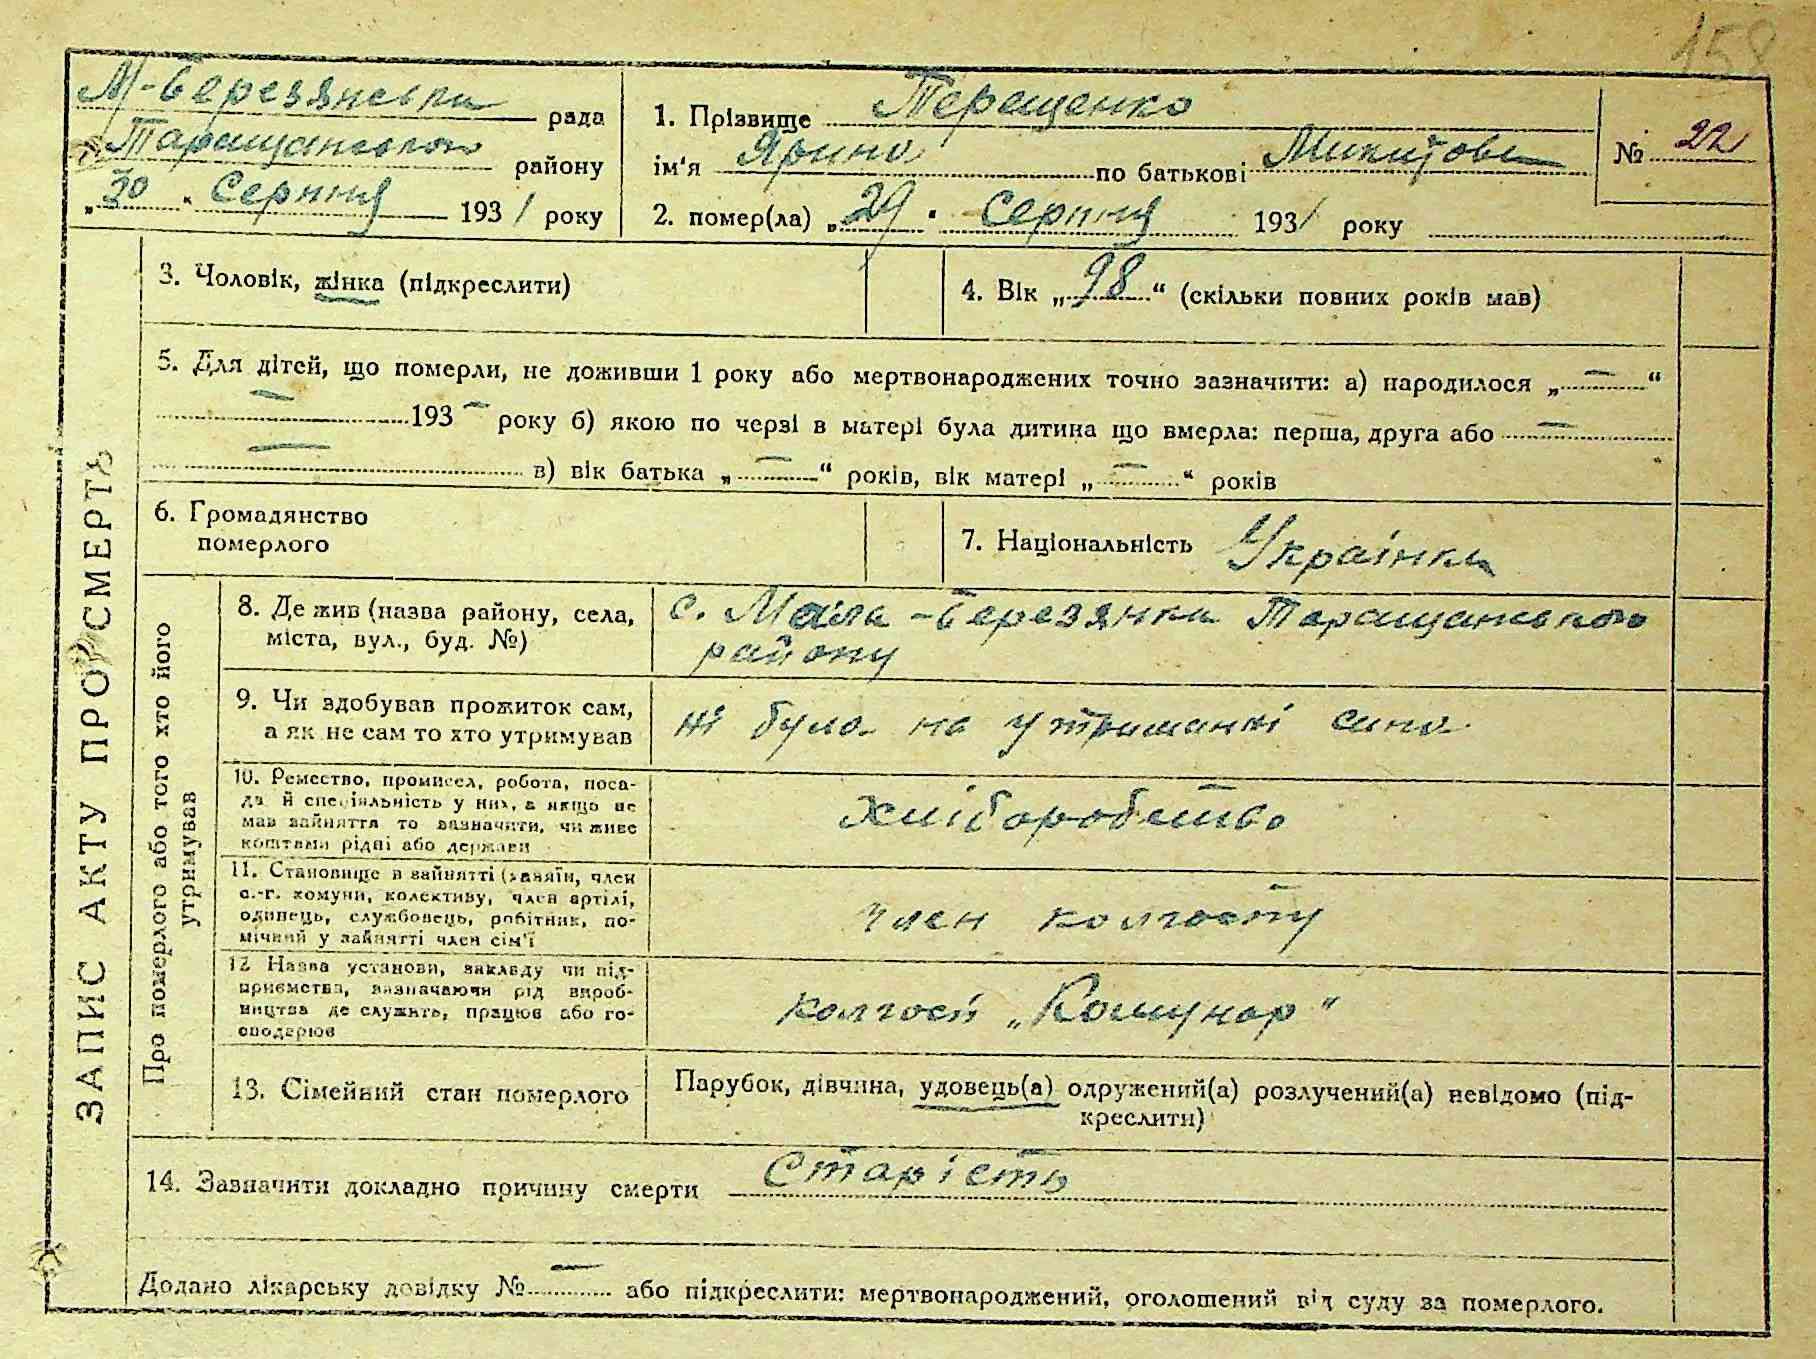 158
М-Березянська рада
Таращанського району
„30“ Серпня 1931 року
1. Прізвище Терещенко
ім'я Ярина по батькові Микитова
2. помер(ла) „29“ Серпня 1931 року
№ 22
ЗАПИС АКТУ ПРО СМЕРТЬ
3. Чоловік, жінка (підкреслити)
4. Вік „98“ (скільки повних років мав)
5. Для дітей, що померли, не доживши 1 року або мертвонароджених точно зазначити: а) народилося „—“
— 193— року б) якою по черзі в матері була дитина що вмерла: перша, друга або —
— в) вік батька „—“ років, вік матері „—“ років
6. Громадянство
померлого
7. Національність Українка
Про померлого або того хто його
утримував
8. Де жив (назва району, села,
міста, вул., буд. №)
с. Мала-Березянка Таращанського
району
9. Чи здобував прожиток сам,
а як не сам то хто утримував
ні була на утриманні сина
10. Ремество, промисел, робота, поса-
да й спеціяльність у них, а якщо не
мав зайняття то зазначити, чи живе
коштами рідні або держави
Хліборобство
11. Становище в зайнятті (хазяїн, член
с.-г. комуни, колективу, член артілі,
одинець, службовець, робітник, по-
мічний у зайнятті член сім'ї
член колгоспу
12 Назва установи, закладу чи під-
приємства, зазначаючи рід вироб-
ництва де служить, працює або го-
сподарює
колгосп „Комунар"
13. Сімейний стан померлого
Парубок, дівчина, удовець(а) одружений(а) розлучений(а) невідомо (під-
креслити)
14. Зазначити докладно причину смерти Старість
Додано лікарську довідку № — або підкреслити: мертвонароджений, оголошений від суду за померлого.